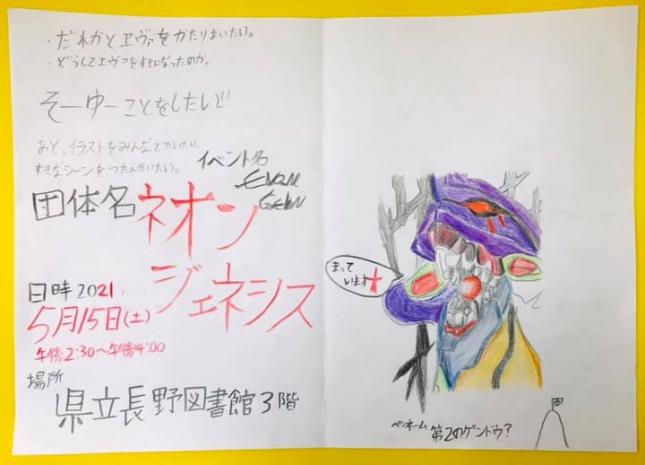 ・だれかとエヴァをかたりあいたい。
・どうしてエヴァをすきになったのか。
そーゆーことをしたい!!
あと、イラストをみんなでかいたり、
すきなシーンをつたえあいたい。
イベント名
団体名ネオン
ジェネシス
日時2021.
5月15日(土)
午後2:30〜午後4:00
場所
県立長野図書館3階
まって
います
ペンネーム 第2のゲンドウ?